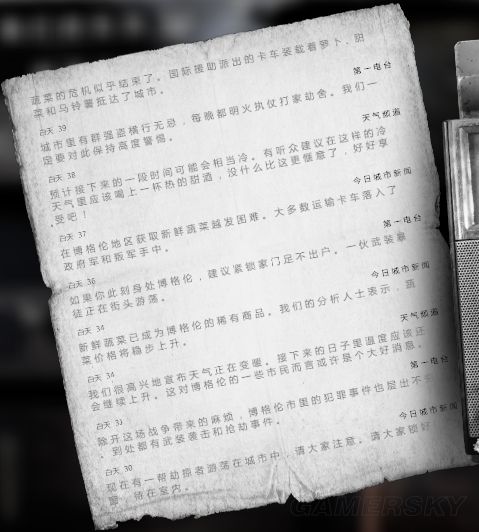 蔬菜的危机似乎结束了。国际援助派出的卡车装载着萝卜、甜
菜和马铃薯抵达了城市。
第一电台
白天 39
城市里有群强盗横行无忌，每晚都明火执仗打家劫舍。我们一
定要对此保持高度警惕。
天气频道
白天 38
预计接下来的一段时间可能会相当冷。有听众建议在这样的冷
天气里应该喝上一杯热的甜酒，没什么比这更惬意了，好好享
受吧！
今日城市新闻
白天 37
在博格伦地区获取新鲜蔬菜越发困难。大多数运输卡车落入了
政府军和叛军手中。
第一电台
白天 36
如果你此刻身处博格伦，建议紧锁家门足不出户。一伙武装暴
徒正在街头游荡。
今日城市新闻
白天 34
新鲜蔬菜已成为博格伦的稀有商品。我们的分析人士表示，蔬
菜价格将稳步上升。
天气频道
白天 34
我们很高兴地宣布天气正在变暖。接下来的日子里温度应该还
会继续上升。这对博格伦的一些市民而言或许是个大好消息。
第一电台
白天 31
除开这场战争带来的麻烦，博格伦市里的犯罪事件也层出不
，到处都有武装袭击和抢劫事件。
今日城市新闻
白天 30
现在有一帮劫掠者游荡在城市中，请大家注意。请大家锁好
待在室内。
GAMERSKY